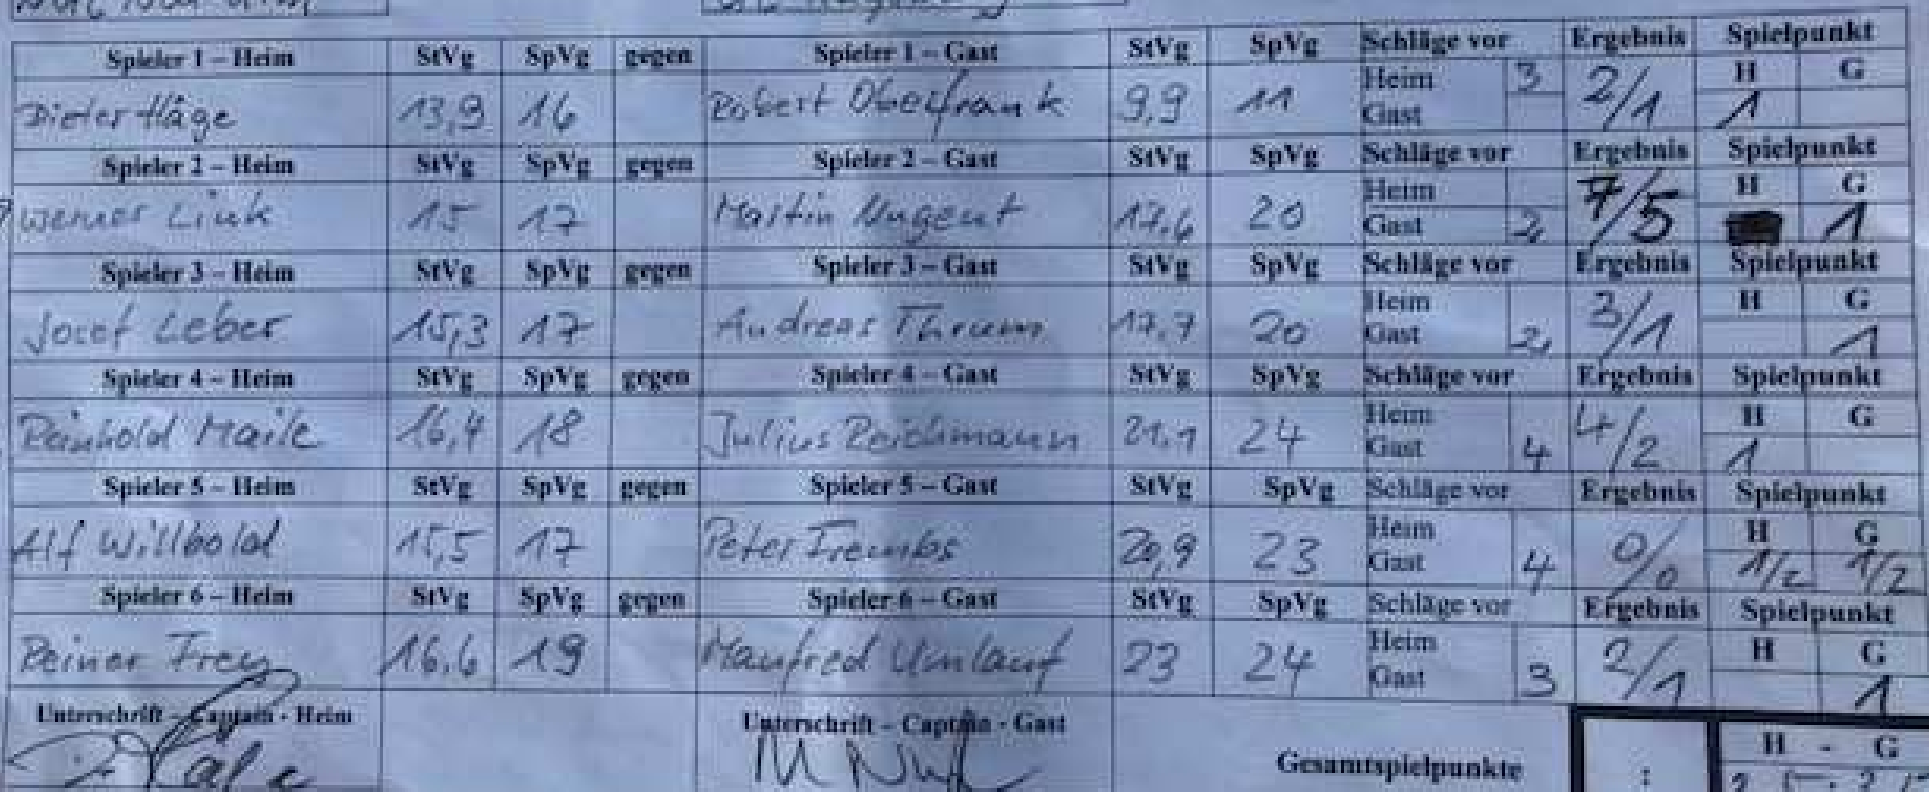 Spieler 1 – Heim StVg SpVg gegen Spieler 1 – Gast StVg SpVg Schläge vor Ergebnis Spielpunkt
Dieter Häge 13,9 16 Robert Oberfrank 9,9 11 Heim 3 2/1 H G
Gast 1
Spieler 2 – Heim StVg SpVg gegen Spieler 2 – Gast StVg SpVg Schläge vor Ergebnis Spielpunkt
Werner Link 15 17 Martin Ungent 17,6 20 Heim 7/5 H G
Gast 2 1
Spieler 3 – Heim StVg SpVg gegen Spieler 3 – Gast StVg SpVg Schläge vor Ergebnis Spielpunkt
Josef Leber 15,3 17 Andreas Thrum 17,7 20 Heim 3/1 H G
Gast 2 1
Spieler 4 – Heim StVg SpVg gegen Spieler 4 – Gast StVg SpVg Schläge vor Ergebnis Spielpunkt
Reinhold Maile 16,4 18 Julius Reichmann 21,1 24 Heim 4/2 H G
Gast 4 1
Spieler 5 – Heim StVg SpVg gegen Spieler 5 – Gast StVg SpVg Schläge vor Ergebnis Spielpunkt
Alf Willbold 15,5 17 Peter Trembs 20,9 23 Heim 0/0 H G
Gast 4 1/2 1/2
Spieler 6 – Heim StVg SpVg gegen Spieler 6 – Gast StVg SpVg Schläge vor Ergebnis Spielpunkt
Reiner Frey 16,6 19 Manfred Umlauf 23 24 Heim 2/1 H G
Gast 3 1
Unterschrift – Captain - Heim Unterschrift – Captain - Gast Gesamtspielpunkte : H - G